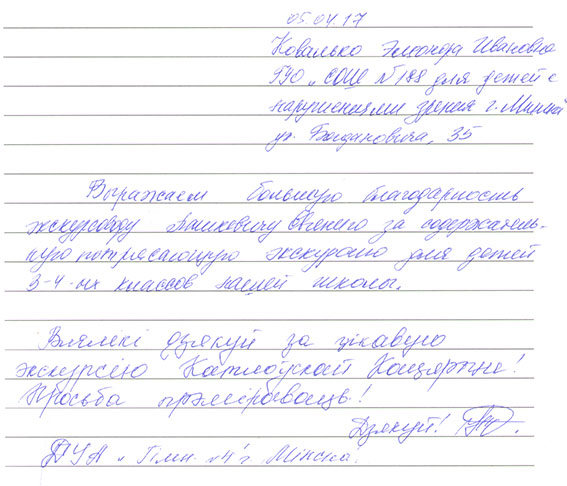 05.04.17
Ковалько Элеонора Ивановна
ГУО „СОШ № 188 для детей с
нарушениями зрения г. Минска"
ул. Богдановича, 35
Выражаем большую благодарность
экскурсоводу Евгению за содержатель-
ную потрясающую экскурсию для детей
3-4-ых классов нашей школы.
Вялікі дзякуй за цікавую
экскурсію Кацярыне!
Просьба прэміраваць!
Дзякуй!
ДУА „Гімн. №4 г. Мінска"